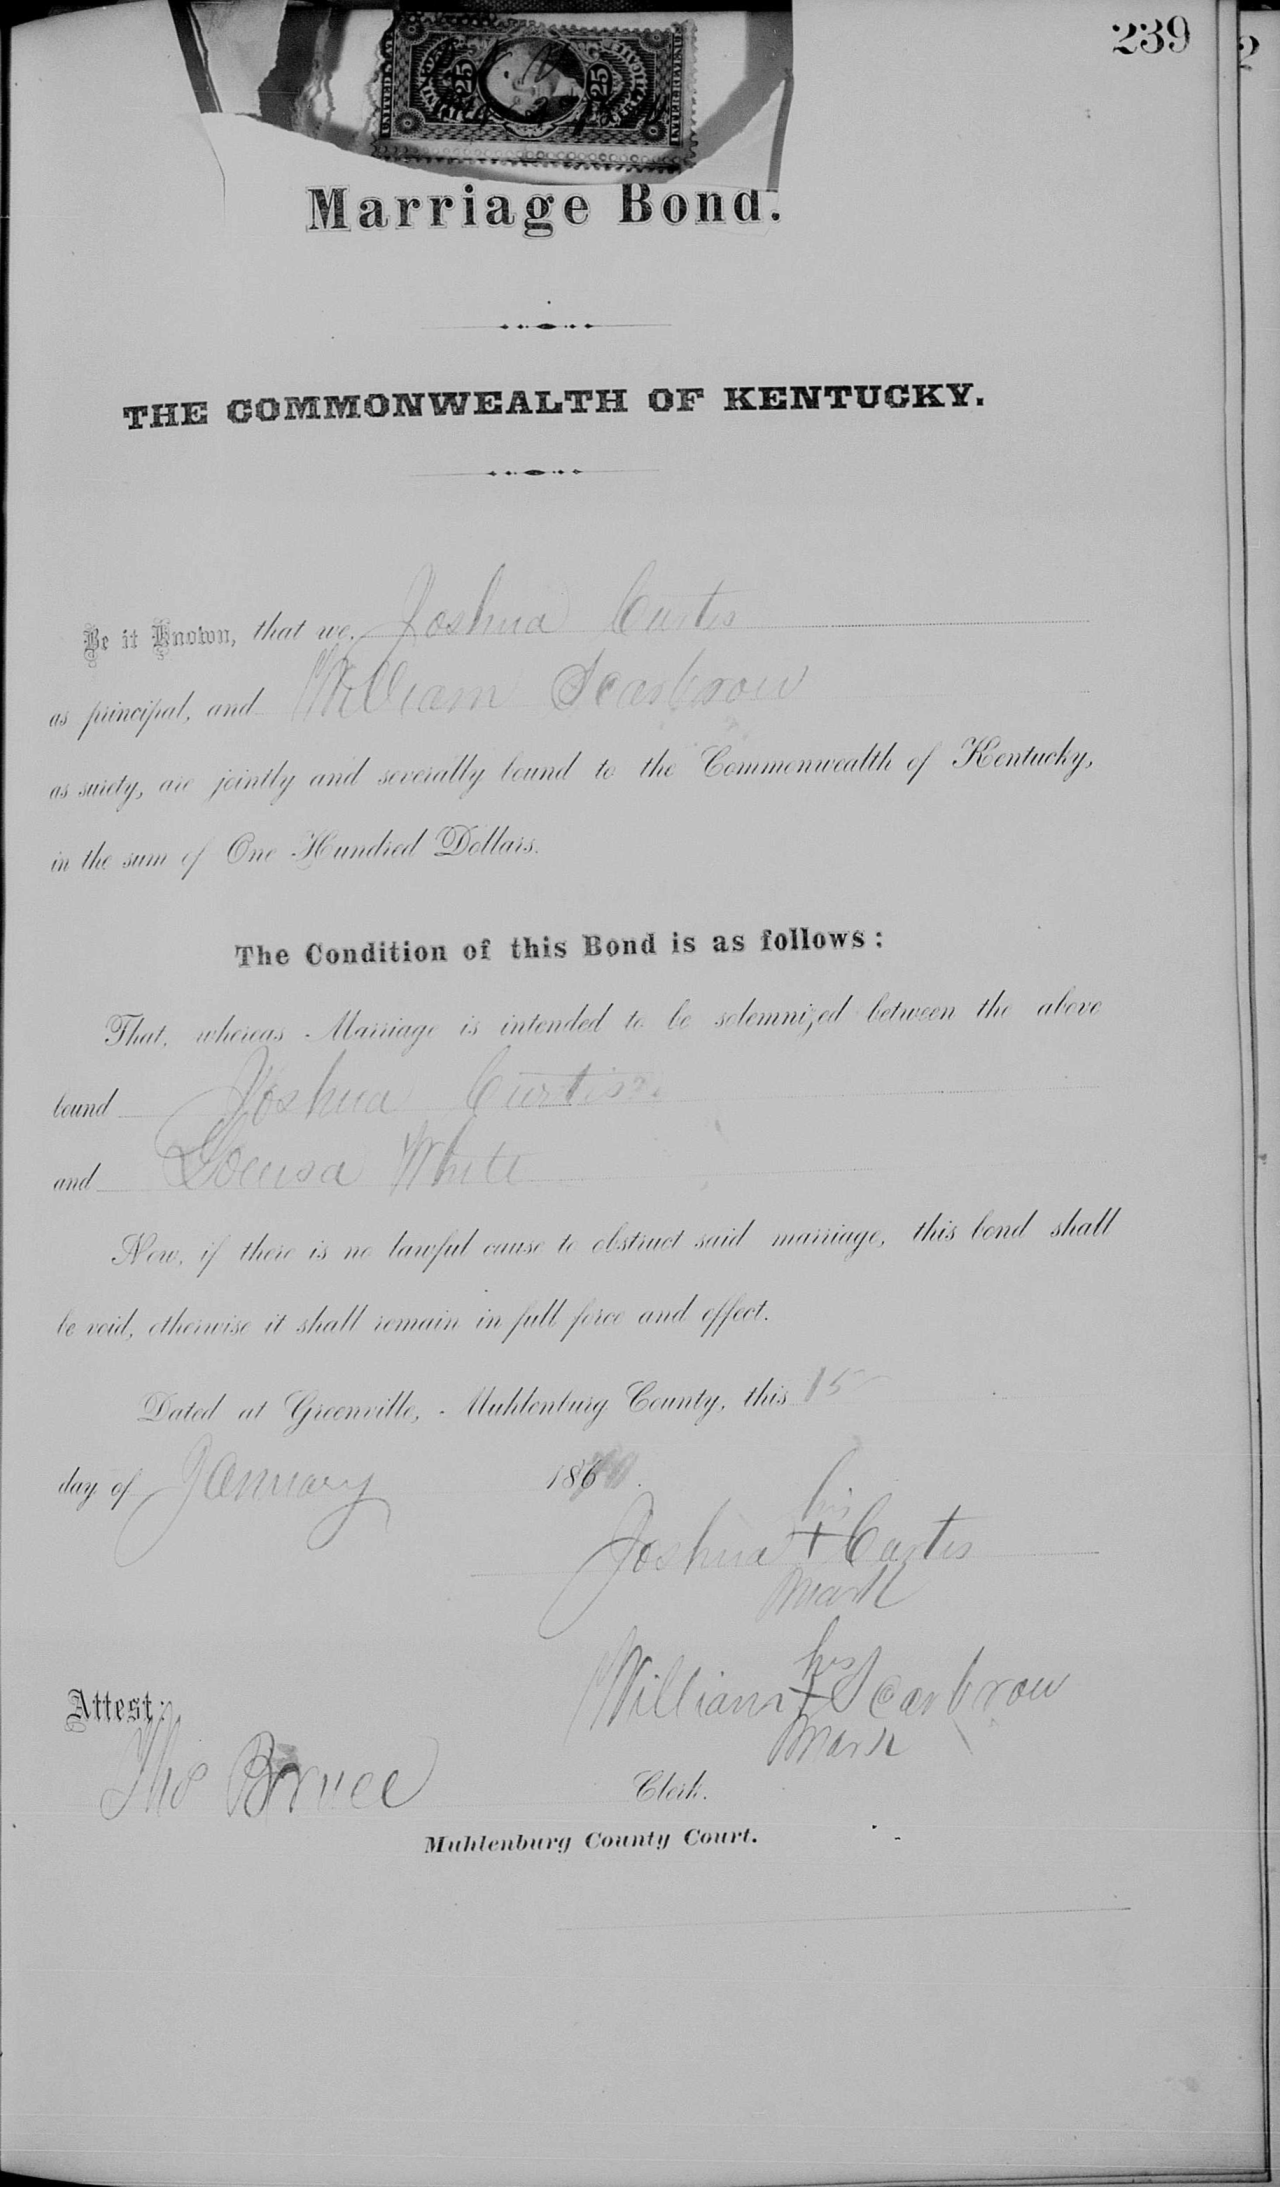 239
2
UNITED
25
25
Marriage Bond.
THE COMMONWEALTH OF KENTUCKY.
Be it Known, that we, Joshua Curtis
as principal, and William Scarbrow
as surety, are jointly and severally bound to the Commonwealth of Kentucky,
in the sum of One Hundred Dollars.
The Condition of this Bond is as follows:
That, whereas Marriage is intended to be solemnized between the above
bound Joshua Curtiss
and Louisa White
Now, if there is no lawful cause to obstruct said marriage, this bond shall
be void, otherwise it shall remain in full force and effect.
Dated at Greenville, Muhlenburg County, this 15
day of January 1870.
his
Joshua + Curtis
mark
his
William + Scarbrow
mark
Attest:
Tho Bruce Clerk.
Muhlenburg County Court.